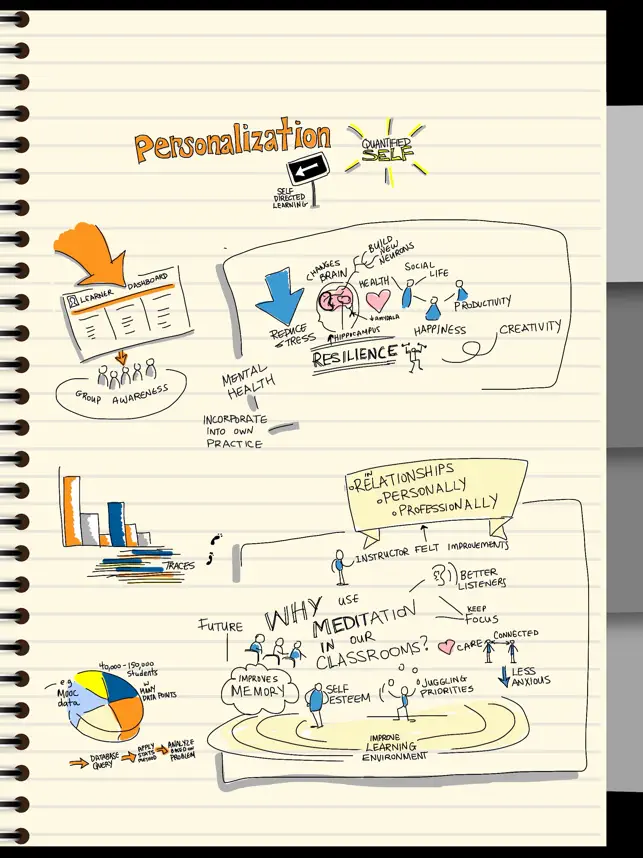 Personalization
QUANTIFIED
SELF
SELF
DIRECTED
LEARNING
LEARNER DASHBOARD
GROUP AWARENESS
REDUCE
STRESS
CHANGES
BRAIN
BUILD
NEW
NEURONS
HEALTH
SOCIAL
LIFE
PRODUCTIVITY
HAPPINESS
CREATIVITY
HIPPOCAMPUS
RESILIENCE
MENTAL
HEALTH
INCORPORATE
INTO OWN
PRACTICE
TRACES
IN
RELATIONSHIPS
PERSONALLY
PROFESSIONALLY
INSTRUCTOR FELT IMPROVEMENTS
BETTER
LISTENERS
KEEP
FOCUS
WHY USE
MEDITATION
IN OUR
CLASSROOMS?
CARE
CONNECTED
LESS
ANXIOUS
FUTURE
IMPROVES
MEMORY
SELF
ESTEEM
JUGGLING
PRIORITIES
IMPROVE
LEARNING
ENVIRONMENT
e.g.
MOOC
data
40,000-150,000
Students
W/
MANY
DATA POINTS
DATABASE
QUERY
APPLY
STATS
METHOD
ANALYZE
BASED ON
PROBLEM